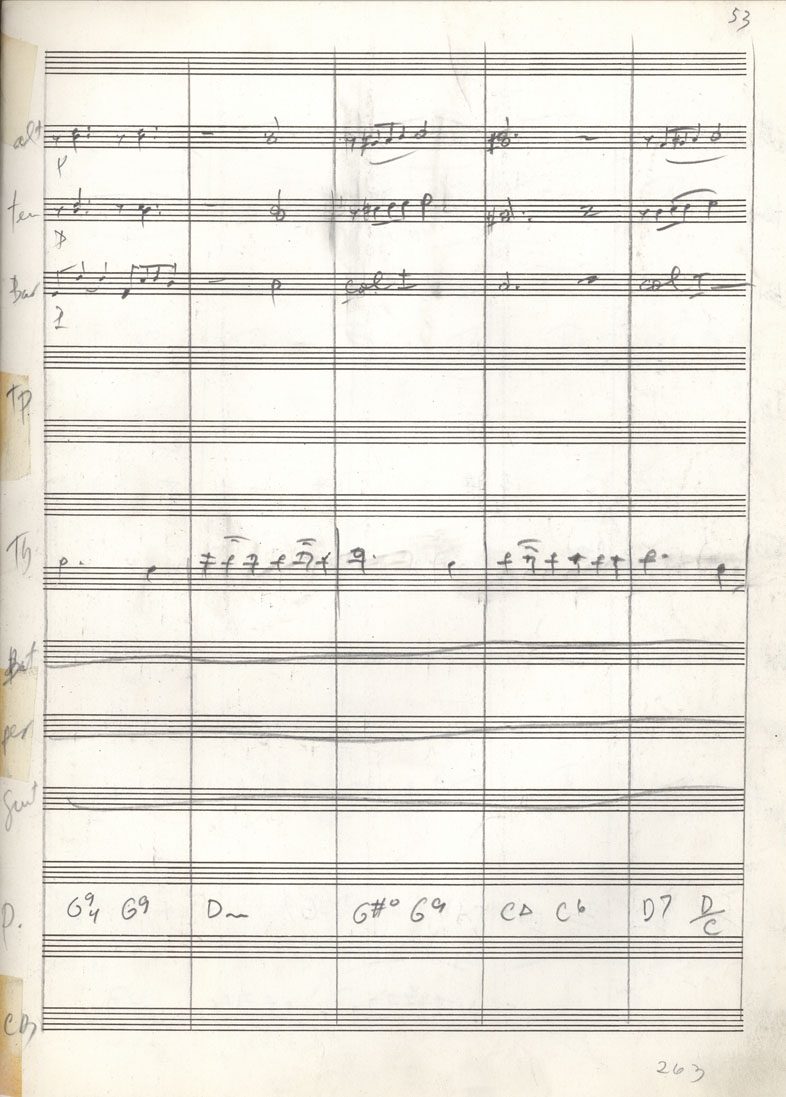 53
alt
ten
Bar
col I
col I
Tp.
Tb
Bat
per
Guit
P.
G9/4 G9 Dm G#° G9 CΔ C6 D7 D/C
CB
263